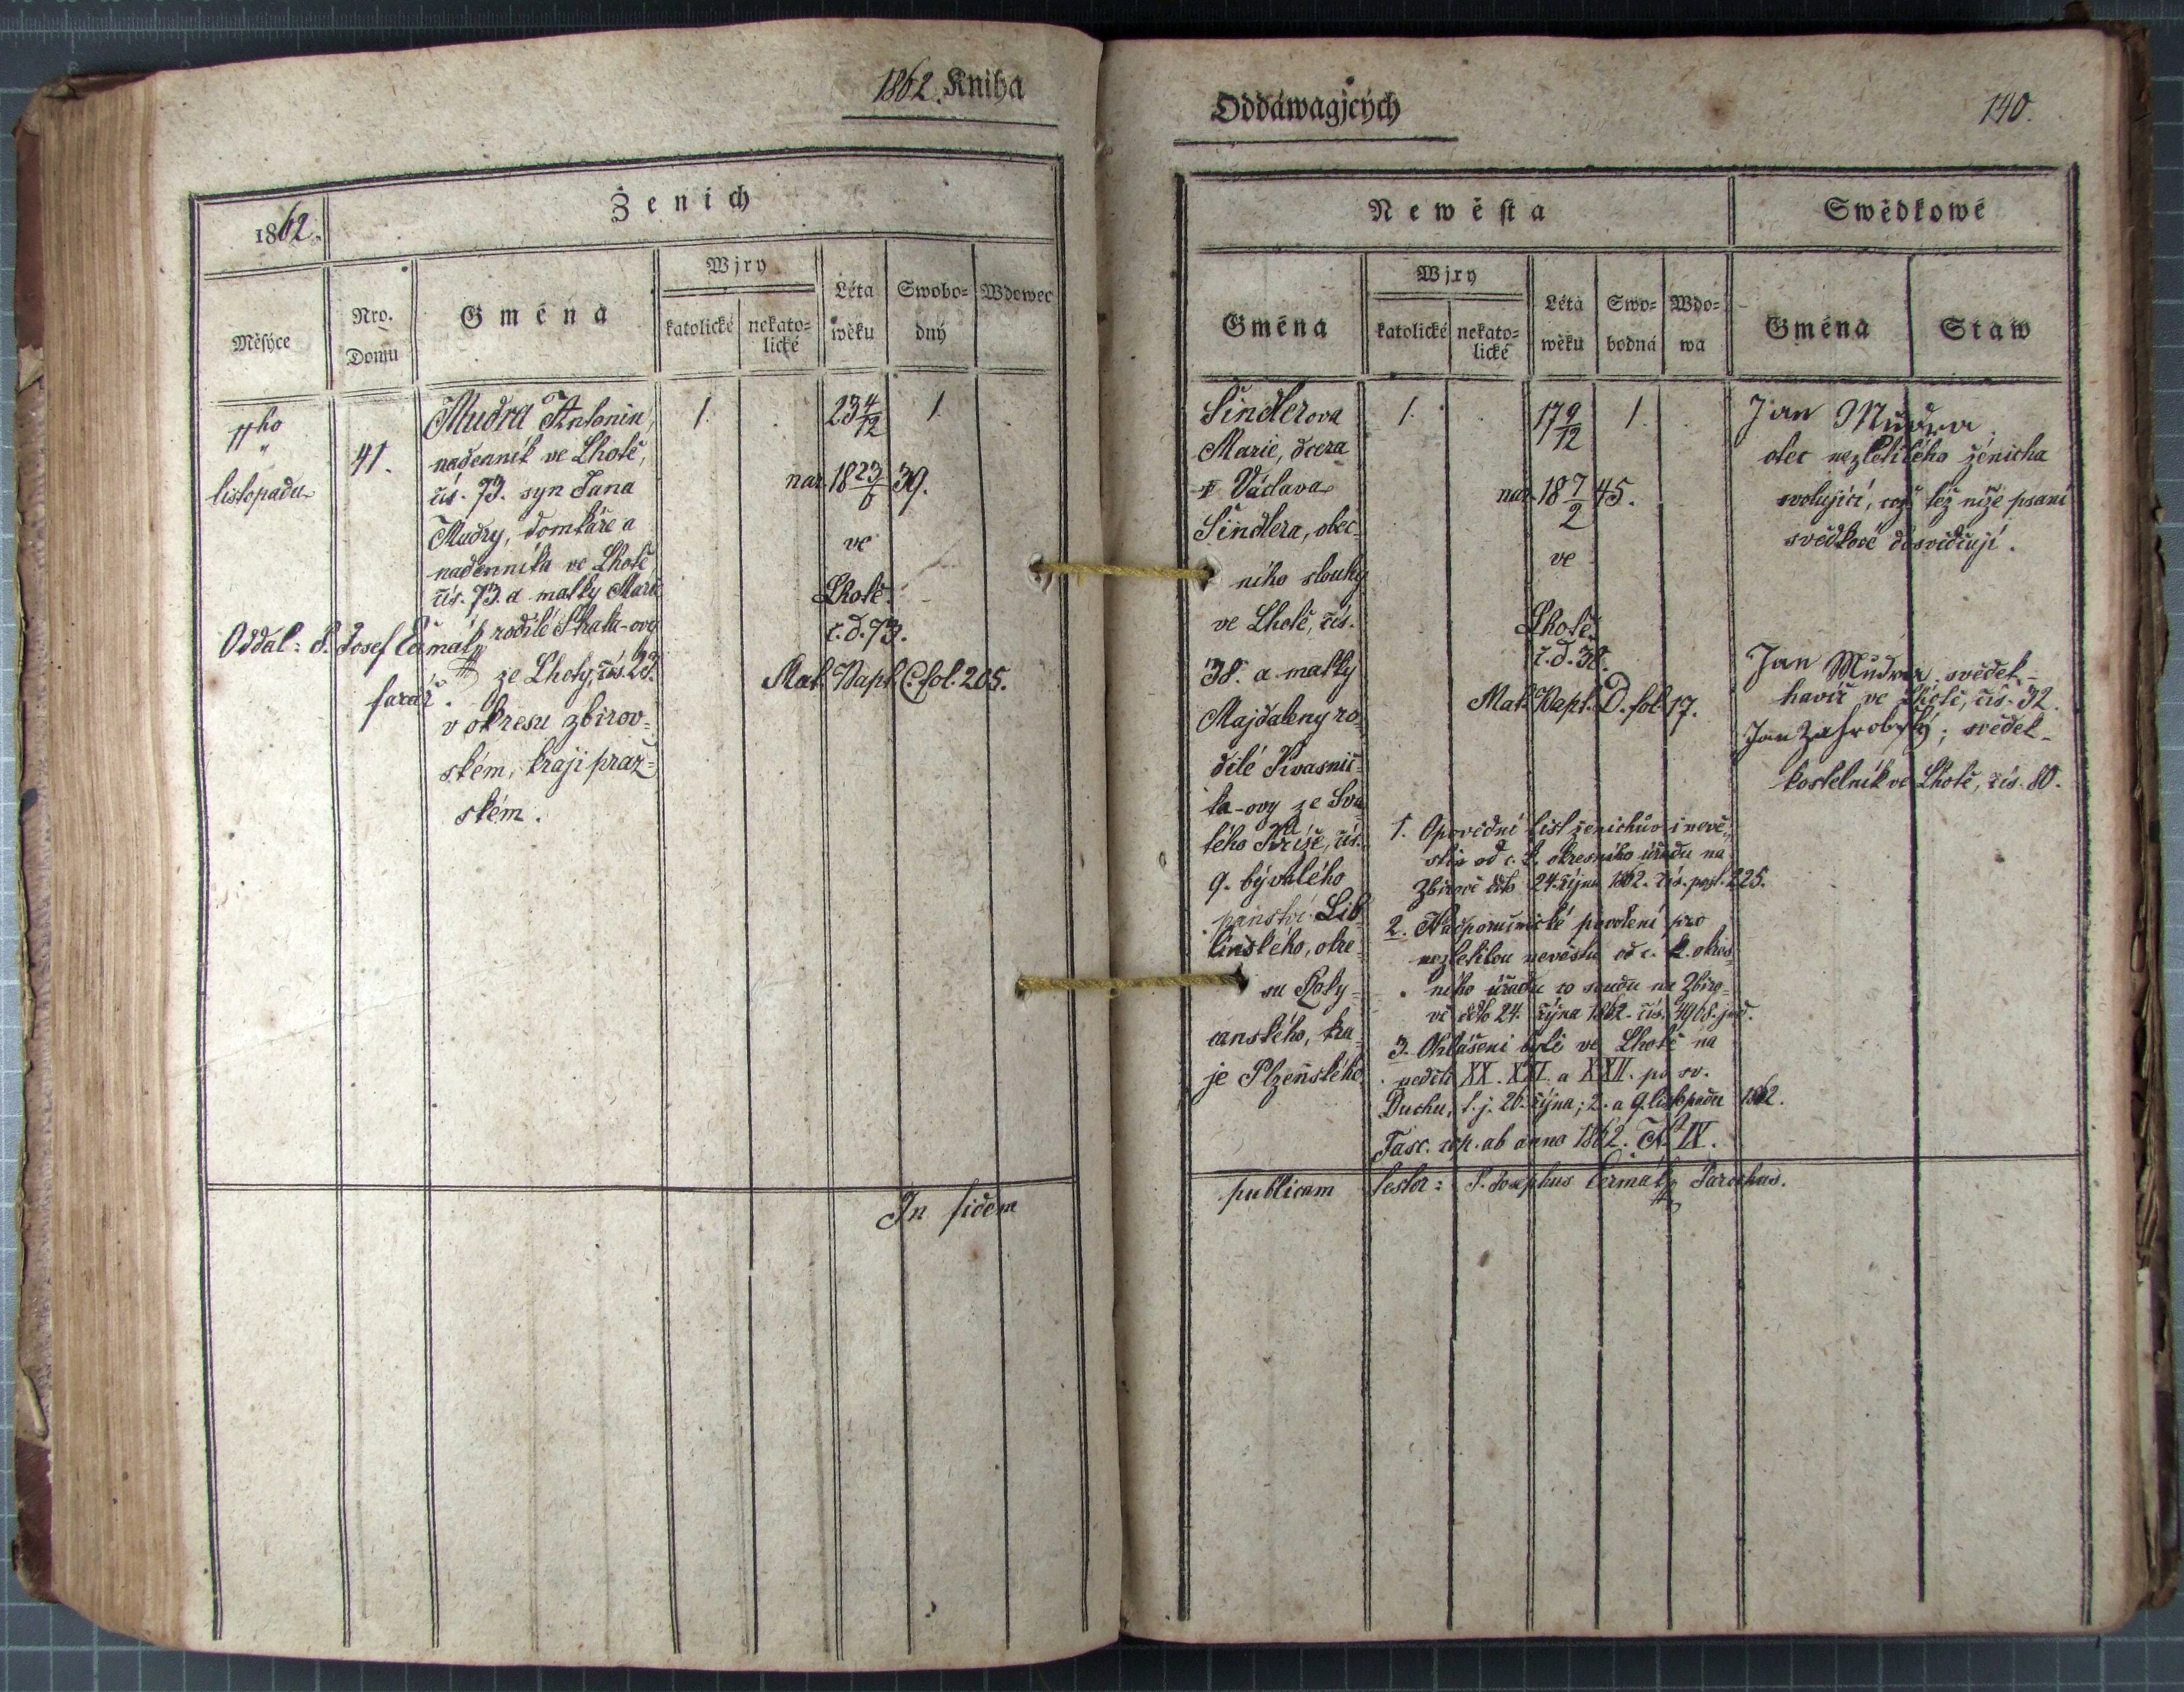 1862. Kniha
1862.
Ženich
Měsýce
Nro. Domu
Gména
Wjry
katolické
nekato=
lické
Léta
wěku
Swobo=
dný
Wdowec
11ho
listopadu
41.
Mudra Antonín,
nádenník ve Lhotě,
čís. 73. syn Jana
Mudry, domkáře a
nádenníka ve Lhotě
čís. 73. a matky Marie
rodilé Skala-ovy
ze Lhoty, čís. 23.
v okresu zbirov=
ském, kraji praž=
ském.
1.
23 4/12
1.
nar. 18 23/6 39.
ve
Lhotě.
č. d. 73.
Mat. Bapt. C. fol. 205.
Oddal: P. Josef Čermák,
farář.
In fidem
Oddáwagjcých
140.
Newěsta
Swědkowé
Gména
Wjry
katolické
nekato=
lické
Léta
wěku
Swo=
bodná
Wdo=
wa
Gména
Staw
Šindlerova
Marie, dcera
Václava
Šindlera, obec=
ního slouhy
ve Lhotě, čís.
38. a matky
Majdaleny ro=
dilé Kvasnič=
ka-ovy ze Sva=
tého Kříže, čís.
9. bývalého
panství Lib=
línského, okre=
su Roky=
canského, kra=
je Plzeňského.
1.
17 9/12
1.
nar. 18 7/2 45.
ve
Lhotě.
č. d. 38.
Mat. Bapt. D. fol. 17.
Jan Mudra
otec nezletilého ženicha
svolující, což též níže psaní
svědkové dosvědčují.
Jan Mudra, svědek
havíř ve Lhotě, čís. 32.
Jan Zahrobský, svědek
kostelník ve Lhotě, čís. 80.
1. Opovědní list ženichův i nevě=
stin od c. k. okresního úřadu na
Zbirově ddto 24. října 1862. čís. 225.
2. Nadporučnické povolení pro
nezletilou nevěstu od c. k. okres=
ního úřadu co soudu na Zbiro=
vě ddto 24. října 1862. čís. 4968. jud.
3. Ohlášeni byli ve Lhotě na
neděli XX. XXI. a XXII. po sv.
Duchu, t. j. 26. října; 2. a 9. listopadu 1862.
Fasc. cop. ab anno 1862. N. IX.
publicam testor: P. Josephus Čermák, Parochus.